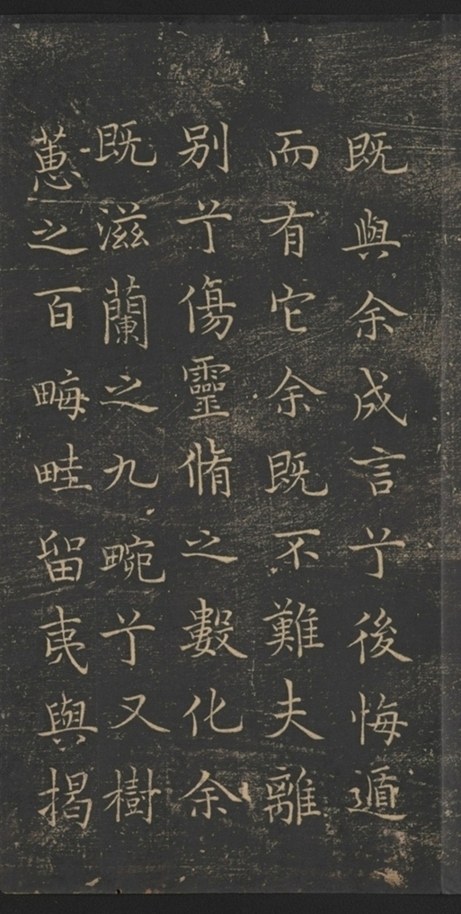 既與余成言兮後悔遁
而有它余既不難夫離
别兮傷靈脩之數化余
既滋蘭之九畹兮又樹
蕙之百畮畦留夷與揭